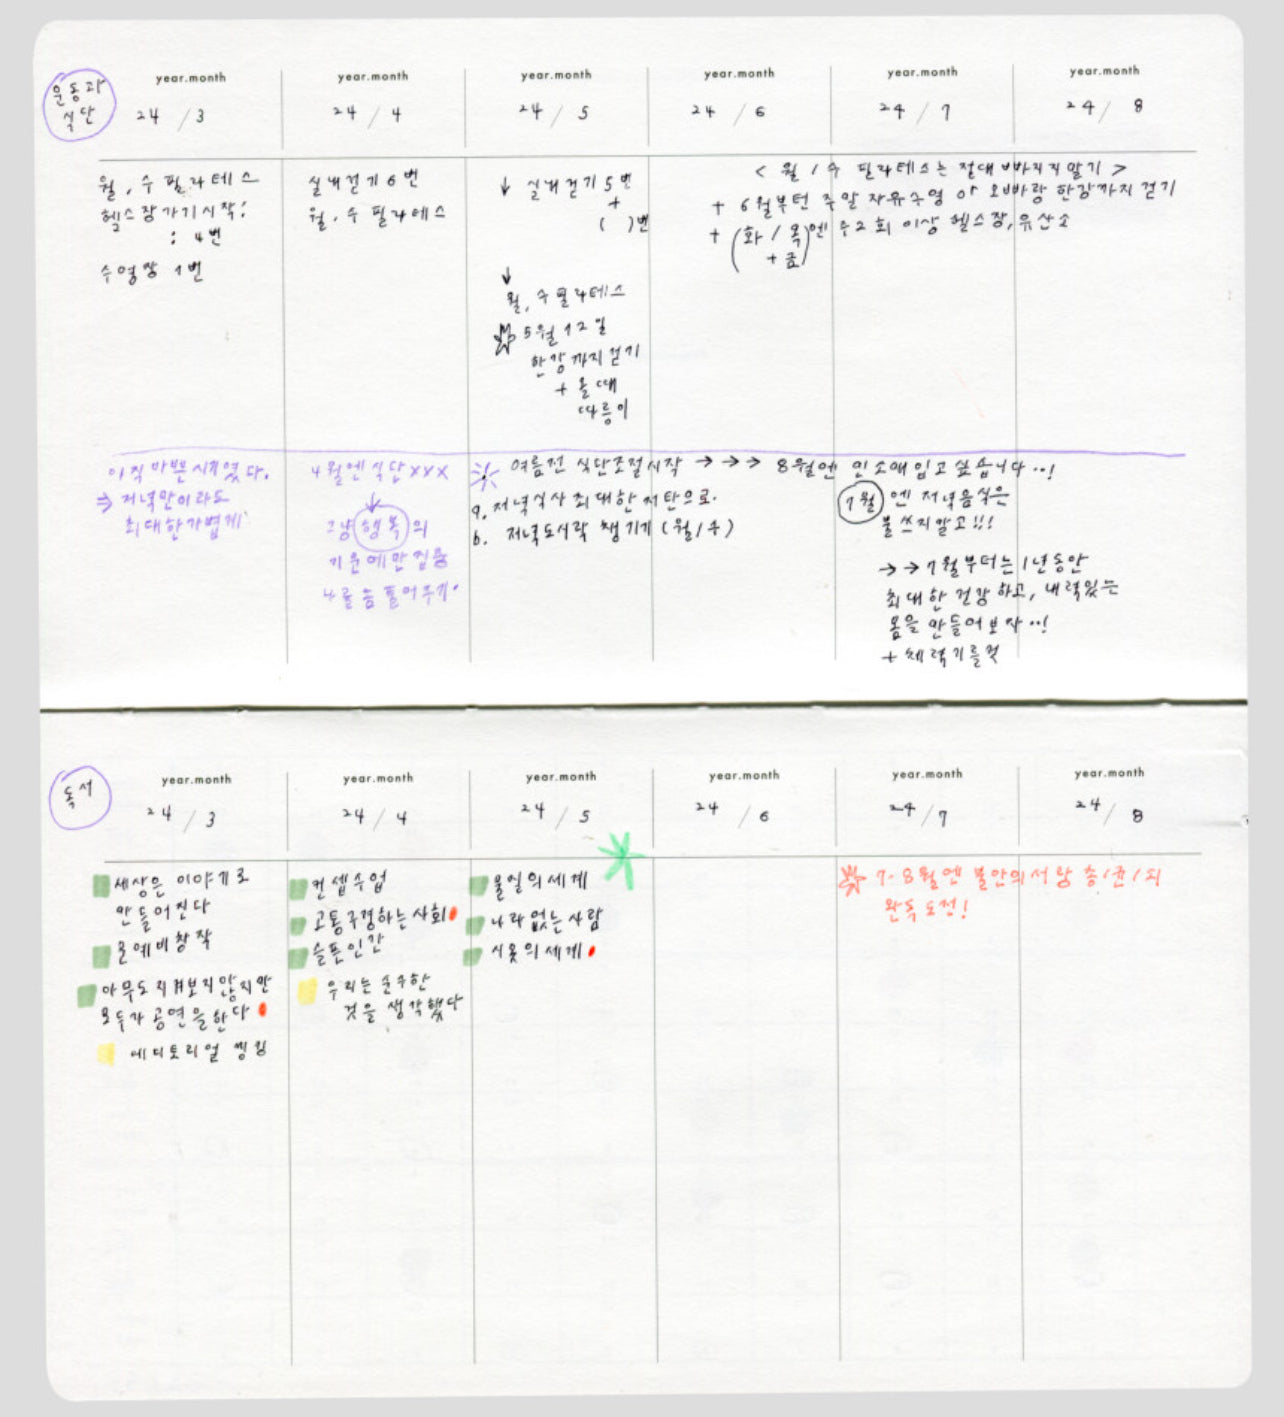 운동과
식단
year.month
24 / 3
year.month
24 / 4
year.month
24 / 5
year.month
24 / 6
year.month
24 / 7
year.month
24 / 8
월, 수 필라테스
헬스장가기시작!
: 4번
수영장 1번
실내걷기 6번
월, 수 필라테스
↓ 실내걷기 5번
+
( )번
↓
월, 수 필라테스
5월 12일
한강까지 걷기
+ 올때
따릉이
< 월 / 수 필라테스는 절대 빠지지말기 >
+ 6월부턴 주말 자유수영 or 오빠랑 한강까지 걷기
+ (화 / 목)엔 주2회 이상 헬스장, 유산소
+ 금
아직 바쁜시기였다.
⇒ 저녁만이라도
최대한가볍게
4월엔 식단 xxx
↓
그냥 행복의
기운에만 집중
나를 좀 풀어주기.
여름전 식단조절시작 → → → 8월엔 민소매입고싶습니다..!
a. 저녁식사 최대한 저탄으로.
b. 저녁도시락 챙기기 (월/수)
7월엔 저녁음식은
불 쓰지말고!!!
→→ 7월부터는 1년동안
최대한 건강하고, 내력있는
몸을 만들어보자..!
+ 체력기를것
독서
year.month
24 / 3
year.month
24 / 4
year.month
24 / 5
year.month
24 / 6
year.month
24 / 7
year.month
24 / 8
세상은 이야기로
만들어진다
문예비창작
아무도 지켜보지 않지만
모두가 공연을한다
에디토리얼 씽킹
컨셉수업
고통구경하는사회
슬픈인간
우리는 순수한
것을 생각했다
물질의세계
나라없는사람
시옷의세계
7-8월엔 불안의서랑 총/균/쇠
완독 도전!